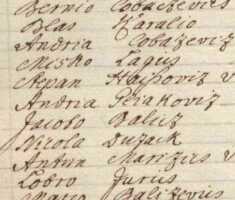 Bernio Cobaczevics
Blas Haralio
Andria Cobazeviz
Misko Lagus
Stepan Haipoviz V
Andria Peiakoviz
Jacobo Balus
Nicola Duzack
Antun Marizus V
Lobro Jurius
Matio Balizevius